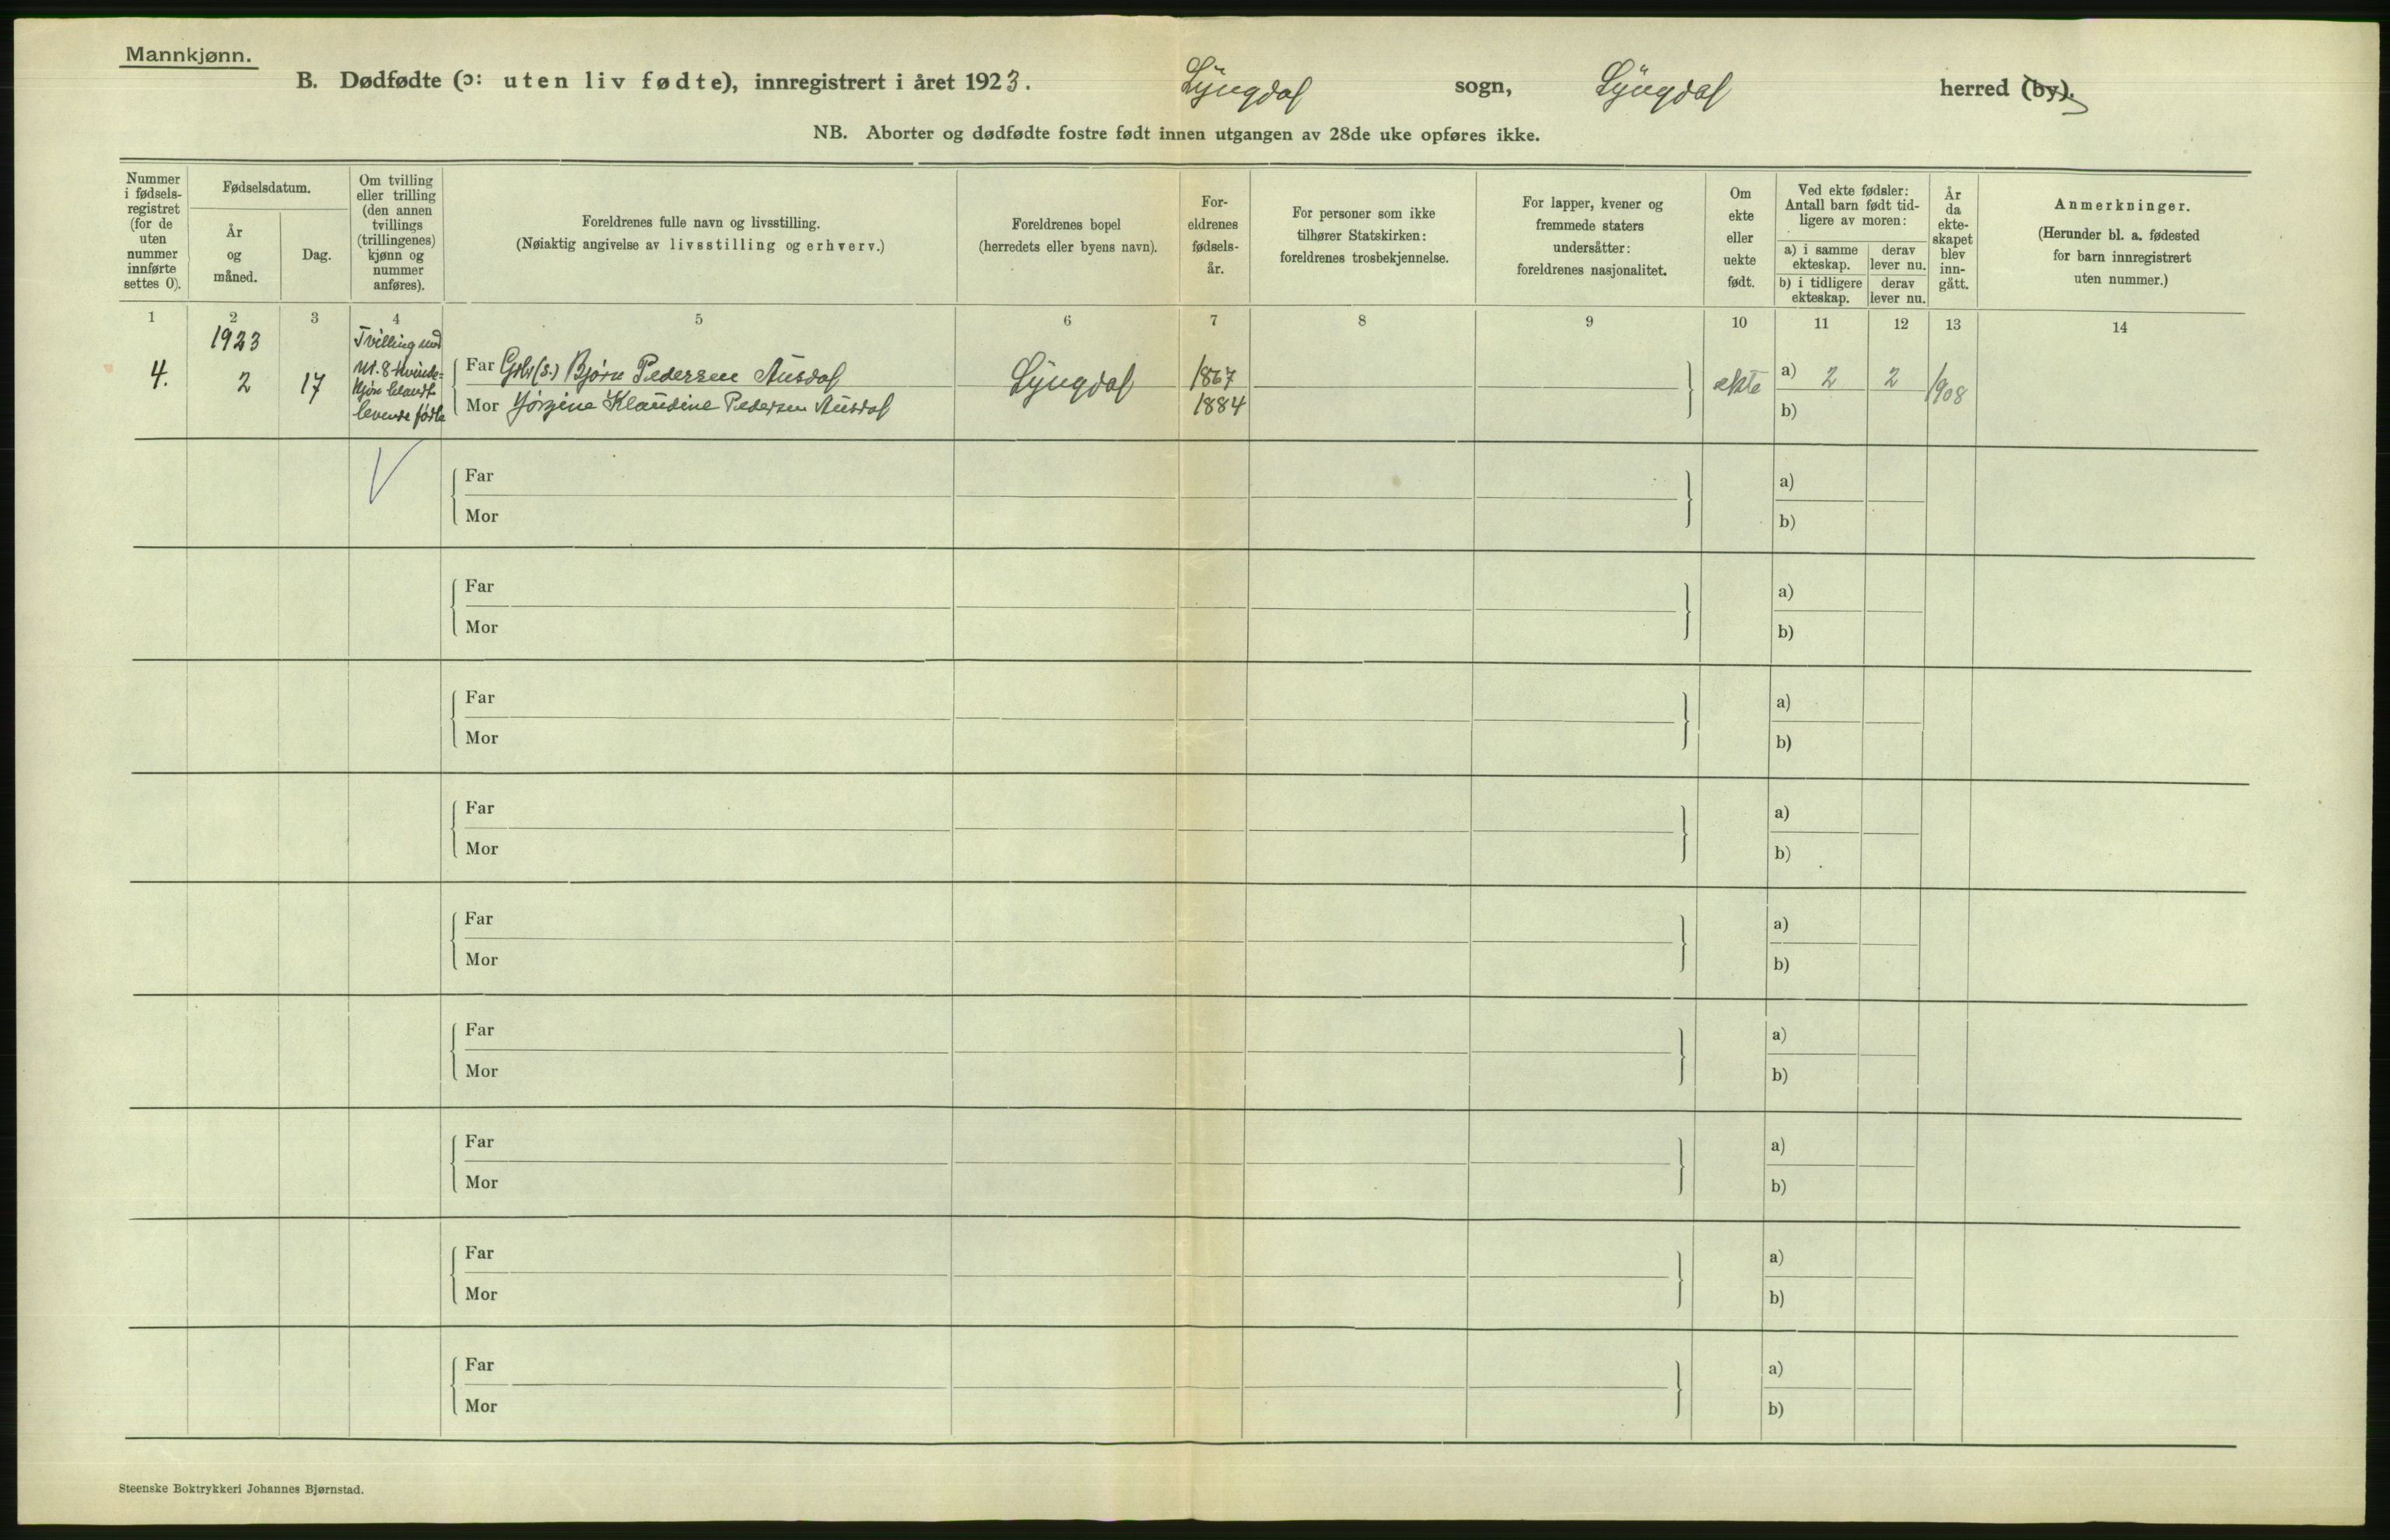 Mannkjønn.
B. Dødfødte (ɔ: uten liv fødte), innregistrert i året 1923. Lyngdal sogn, Lyngdal herred (by).
NB. Aborter og dødfødte fostre født innen utgangen av 28de uke opføres ikke.
Nummer
i fødsels-
registret
(for de
uten
nummer
innførte
settes 0).
Fødselsdatum.
År
og
måned.
Dag.
Om tvilling
eller trilling
(den annen
tvillings
(trillingenes)
kjønn og
nummer
anføres).
Foreldrenes fulle navn og livsstilling.
(Nøiaktig angivelse av livsstilling og erhverv.)
Foreldrenes bopel
(herredets eller byens navn).
For-
eldrenes
fødsels-
år.
For personer som ikke
tilhører Statskirken:
foreldrenes trosbekjennelse.
For lapper, kvener og
fremmede staters
undersåtter:
foreldrenes nasjonalitet.
Om
ekte
eller
uekte
født.
Ved ekte fødsler:
Antall barn født tid-
ligere av moren:
a) i samme
ekteskap.
derav
lever nu.
b) i tidligere
ekteskap.
derav
lever nu.
År
da
ekte-
skapet
blev
inn-
gått.
Anmerkninger.
(Herunder bl. a. fødested
for barn innregistrert
uten nummer.)
1 2 3 4 5 6 7 8 9 10 11 12 13 14
4.
1923
2
17
Tvilling med
nr. 8 kvinde-
kjøn blandt
levende fødte
Far Grbr (s.) Bjørn Pedersen Ausdal
Mor Jørgine Klaudine Pedersen Ausdal
Lyngdal
1867
1884
ekte
a) 2 2
b)
1908
Far a)
Mor b)
Far a)
Mor b)
Far a)
Mor b)
Far a)
Mor b)
Far a)
Mor b)
Far a)
Mor b)
Far a)
Mor b)
Far a)
Mor b)
Far a)
Mor b)
Steenske Boktrykkeri Johannes Bjørnstad.